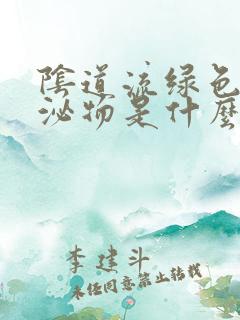 陰道流绿色
泌物是什麼
李建斗
未经同意禁止转载